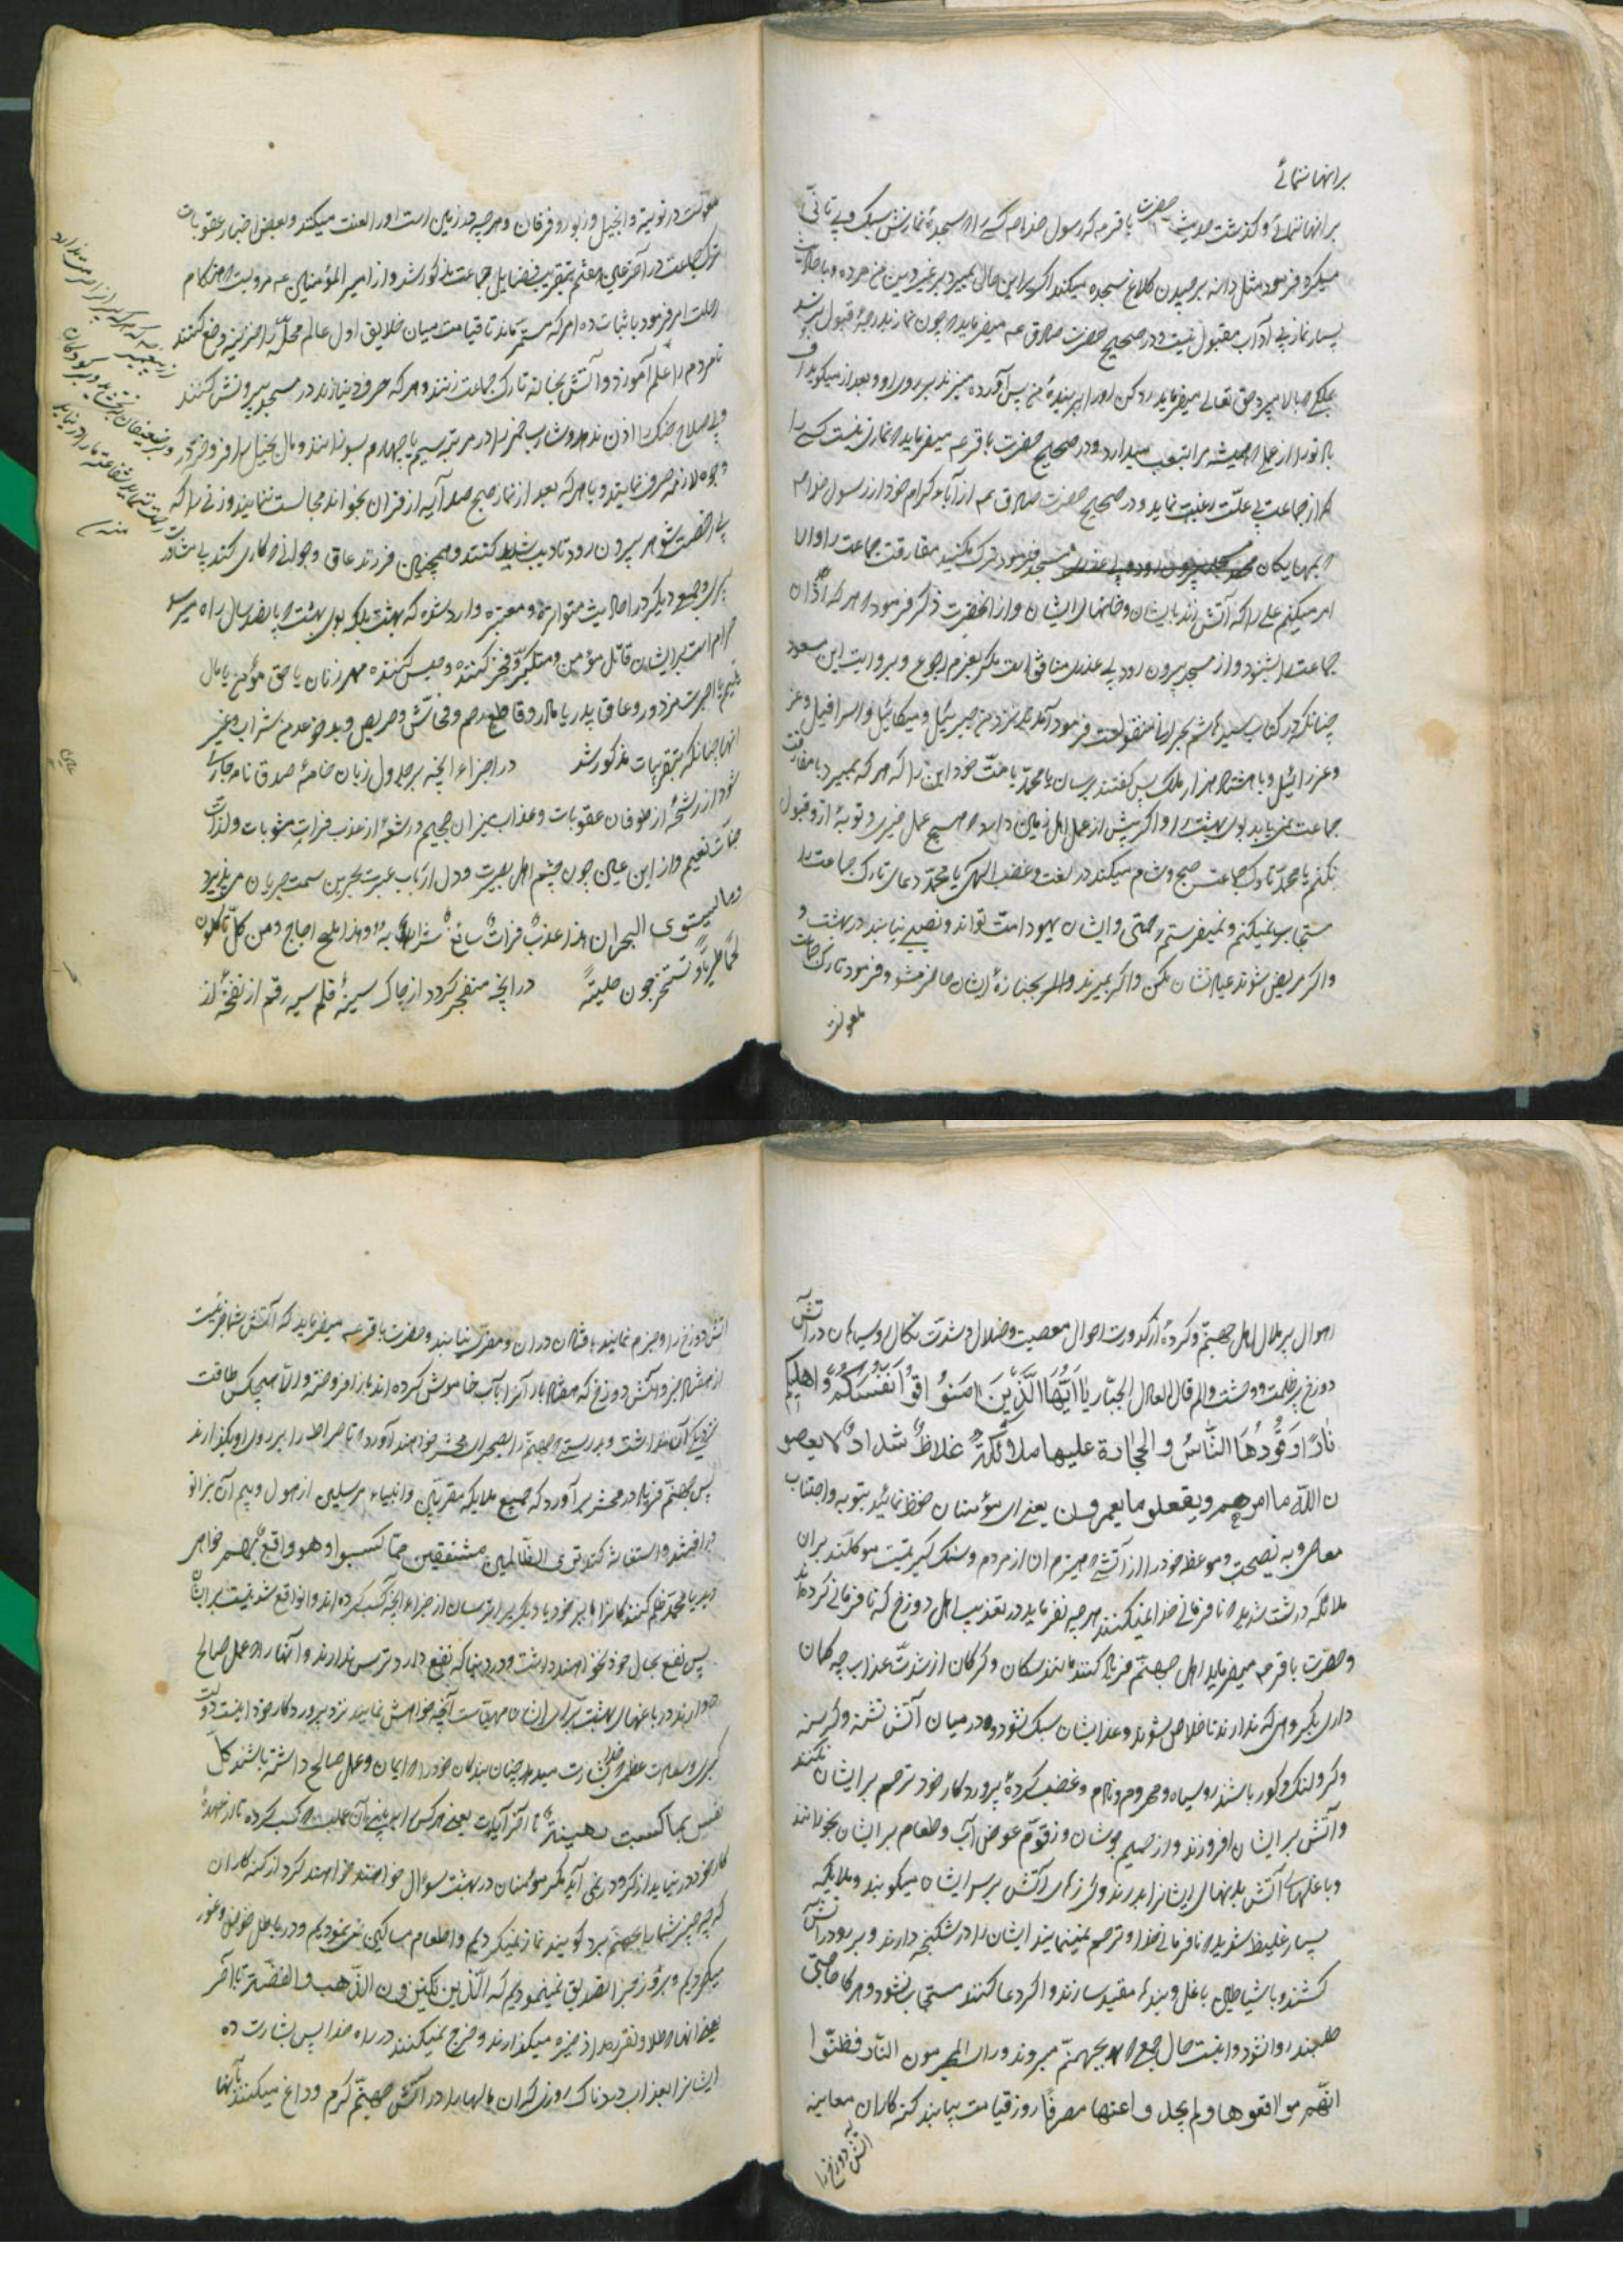 برانها نمائے
برانها نمائے و گذشت حدیث حضرت باقر عه که رسول خدا صه کسے را که سجدهٔ نمازش سبک و بے تانّی
میکرد فرمود مثل دانه برچیدن کلاغ سجده میکند اکر براین حال بمیرد بر غیر دین من مرده و باحادیث
بسیار نماز بے آداب مقبول نیست و در صحیح حضرت صادق عه میفرماید که چون نماز بدرجهٔ قبول نرسد
ملکے که بالا میبرد حق تعالے میفرماید رد کن او را بر بندهٔ من پس آورده میزند بر روی او و بعد از میکوید اف
بر تو مرا از عمل همیشه مرا بتعب میدارد و در صحیح حضرت باقر عه میفرماید که نمازی نیست کسے را
که از جماعت بے علّت رغبت نماید و در صحیح حضرت صادق عه از آباء کرام خود از رسول خدا صه
که بهمسایکان مسجد فرمود ترک نکنید مفارقت جماعت را والا
امر میکنم علے را که آتش زند بایشان و خانهای ایشان و از انحضرت ذکر فرمود که هر که اذان
جماعت را بشنود و از مسجد بیرون رود بے عذری منافق است مکر بعزم رجوع و بروایت ابن مسعود
چنانکه در کتاب سید هاشم بحرانی منقولست فرمود آمدند نزد من جبرئیل و میکائیل و اسرافیل و عز
و عزرائیل و با هشتاد هزار ملک پس کفتند برسان یا محمّد با امّت خود این را که هر که بمیرد با مفارقت
جماعت نمی یابد بوی بهشت را و اکر بیش از عمل اهل زمین دارد که هیچ عمل خیری و توبهٔ از و قبول
نکنم یا محمّد تارک جماعت صبح و شام میکند در لعنت و غضب الهی یا محمّد دعای تارک جماعت را
مستجاب نمیکنم و نمیفرستم رحمتی و ایشان یهود امت تو اند و نصیبے نیابند در بهشت و
و اکر مریض شوند عیادتشان مکن و اکر بمیرند بجنازهٔ ایشان حاضر مشو و فرمود تارک جماعت
ملعونست
ملعونست در توریة و انجیل و زبور و فرقان و هر چه در زمین است او را لعنت میکند و بعض اخبار عقوبات
ترک جماعت در آخر بتقریب فضایل جماعت مذکور شد و از امیر المؤمنین عه مرویست که هنکام
رحلت امر فرمود باثبات ده امر که مستمر ماند تا قیامت میان خلایق اول عالم محلّه را هزینه وضع کنند
تا مردم را علم آموزد و آتش بخانه تارک جماعت زنند و هر که حرف دنیا زند در مسجد بیرونش کنند
و جوه لازمه صرف نمایند و با هر که بعد از نماز صبح صد آیه از قران بخواند مجالست نمایند و زنے را که
بے رخصت شوهر بیرون رود تادیب شدید کنند و همچنین فرزند عاق و جوانے که کاری کند بے مشاورت
پیران و جمع دیکر در احادیث متواتره و معتبره وارد شده که بهشت بلکه بوی بهشت که پانصد سال راه میرسد
حرام است بر ایشان قاتل مؤمن و متکبّر و فخر کننده و حبس کننده مهر زنان یا حق مؤمن یا مال
یتیم یا اجرت مزدور و عاق پدر یا مادر و قاطع رحم و فحّاش و حریص و بدخو و مدمن شراب و غیر
انها چنانکه بتقریبات مذکور شد در اجزاء انچه بر جدول زبان خامهٔ صدق نامه جاری
شود از رشحهٔ از طوفان عقوبات و عذاب میزان جحیم و رشحهٔ از عذب فرات مثوبات و لذات
جنّات نعیم و از این عین چون چشم اهل بصیرت و دل ارباب عبرت بحرین سمت جریان می پذیرد
وما یستوی البحران هذا عذبٌ فراتٌ سائغٌ شرابه وهذا ملح اجاج ومن کلّ تاکلون
لحماً طریاً وتستخرجون حلیتهً در انچه منفجر کردد از چاک سینهٔ قلم سیه رقم از نفخهٔ از
منه
اهوال بر ملال اهل جهنّم و کردهٔ از کدورت احوال معصیت و ضلال و شدّت نکال و سیاهان در آتش
دوزخ پر ظلمت و وحشت والم قال العدل الجبّار یا أیّها الّذین امنوا قوا أنفسکم واهلیکم
ناراً وقودها النّاس والحجارة علیها ملائکة غلاظ شداد لا یعصو
ن اللّه ما امرهم ویفعلو ما یعمرون یعنے ای مؤمنان حفظ نمائید بتوبه و اجتناب
معاصی و به نصیحت و موعظه خود را از آتشے که هیزم آن از مردم و سنک کبریتست موکلند بر ان
ملائکه درشت شدید که نافرمانے خدا نمیکنند هر چه بفرماید در تعذیب اهل دوزخ که نافرمانے کرده اند
و حضرت باقر عه میفرماید اهل جهنّم فریاد کنند مانند سکان و کرکان از شدّت عذاب چه کمان
داری بکروهی که ندارند تا خلاص شوند و عذابشان سبک نشود و در میان آتش تشنه و کرسنه
و کر و لنک و کور باشند رو سیاه و محروم و نادم و غضب کردهٔ پروردکار خود ترحم بر ایشان نکنند
و آتش بر ایشان افروزند و از حمیم جوشان و زقّوم عوض آب و طعام بر ایشان بخورانند
و با غلهاے آتش بدنهای ایشانرا بدرند و کرزهای آتش بر سر ایشان میکوبند و ملایکه
بسیار غلیظ شدید که نافرمانے خدا و ترحم نمینمایند ایشان را در شکنجه دارند و بر رو در آتش
کشند و با شیاطین با غل و بند مقید سازند و اکر دعا کنند مستجاب نشود و هر کاه حاجتی
طلبند روا نشود و اینست حال جمع که بجهنّم میروند ورای المجرمون النّار فظنّوا
انّهم مواقعوها ولم یجدوا عنها مصرفاً روز قیامت بیابند کنه کاران معاینه
اتش دوزخ را
اتش دوزخ را و جزم نمایند بافتادن در ان و مفرّی نیابند و حضرت باقر عه میفرماید که آتش شما جزئیست
از هفتاد جزو آتش دوزخ که هفتاد بار آنرا بآب خاموش کرده اند باز افروخته و الّا هیچکس طاقت
نزدیک آن نداشت و بدرستے که جهنّم را بصحرای محشر خواهند آورد که تا صراط را بر روی او بکذارند
پس جهنّم فریاد در محشر بر آورد که جمیع ملایکه مقرّبین و انبیاء مرسلین از هول و بیم آن بزانو
در افتند و استغاثه کنند تری الظّالمین مشفقین ممّا کسبوا وهو واقع بهم خواهی
دید یا محمّد ظلم کنندکانرا بر خود یا دیکری ترسان از جزاء انچه کسب کرده اند و آن واقع شدنیست بر ایشان
پس نفع بحال خود نخواهند داشت و در دنیا که نفع دارد ترس ندارند و آنها را که عمل صالح
دارند در باغهای بهشت برای ایشان مهیّاست آنچه خواهش نمایند نزد پروردکار خود اینست دولت
کبری و سعادت عظمی که خدا بشارت میدهد چنان بندکان خود را که ایمان و عمل صالح داشته باشند کلّ
نفس بما کسبت رهینة تا آخر آیات یعنے هر کس
کار خود در نیاید از کرو در نمی آید مکر مؤمنان در بهشت سؤال خواهند خواهند کرد از کنه کاران
که چه چیز شما را بجهنّم برد کویند نماز نمیکردیم و اطعام مساکین نمی نمودیم و در باطل خوض و غور
میکردیم و بروز جزا تصدیق نمینمودیم که الّذین یکنزون الذّهب والفضّة تا آخر
یعنے انها که طلا و نقره را ذخیره میکذارند و خرج نمیکنند در راه خدا پس بشارت ده
ایشانرا بعذاب دردناک روزی که ان مالها را در آتش جهنّم کرم و داغ میکنند بآنها